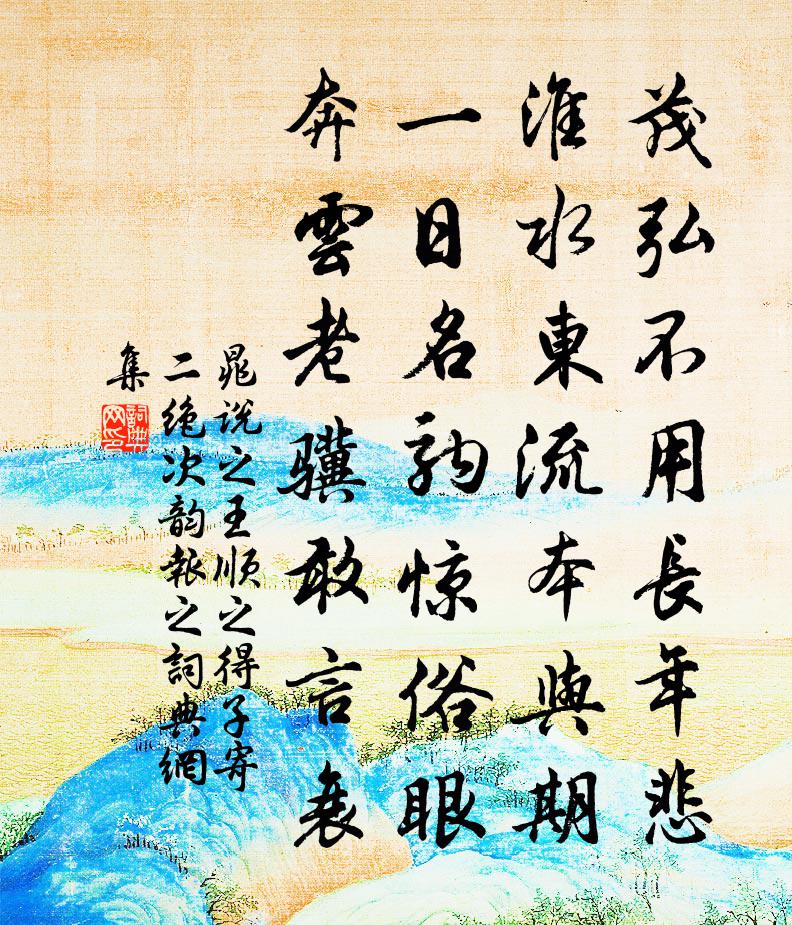 茂弘不用長年悲
淮水東流本與期
一日名駒惊俗眼
奔雲老驥敢言衰
晁说之王顺之得子寄
二绝次韵报之詞典網
集
詞典
网印